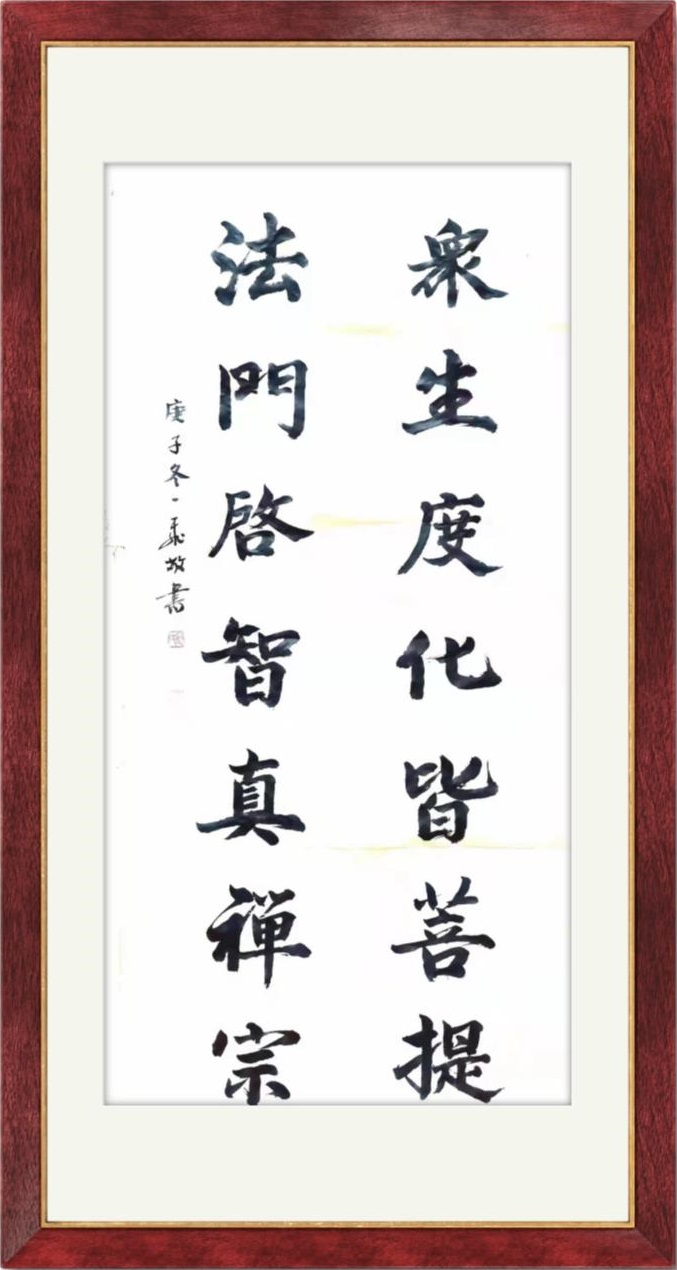 眾生度化皆菩提
法門啓智真禪宗
庚子冬一飛敬書